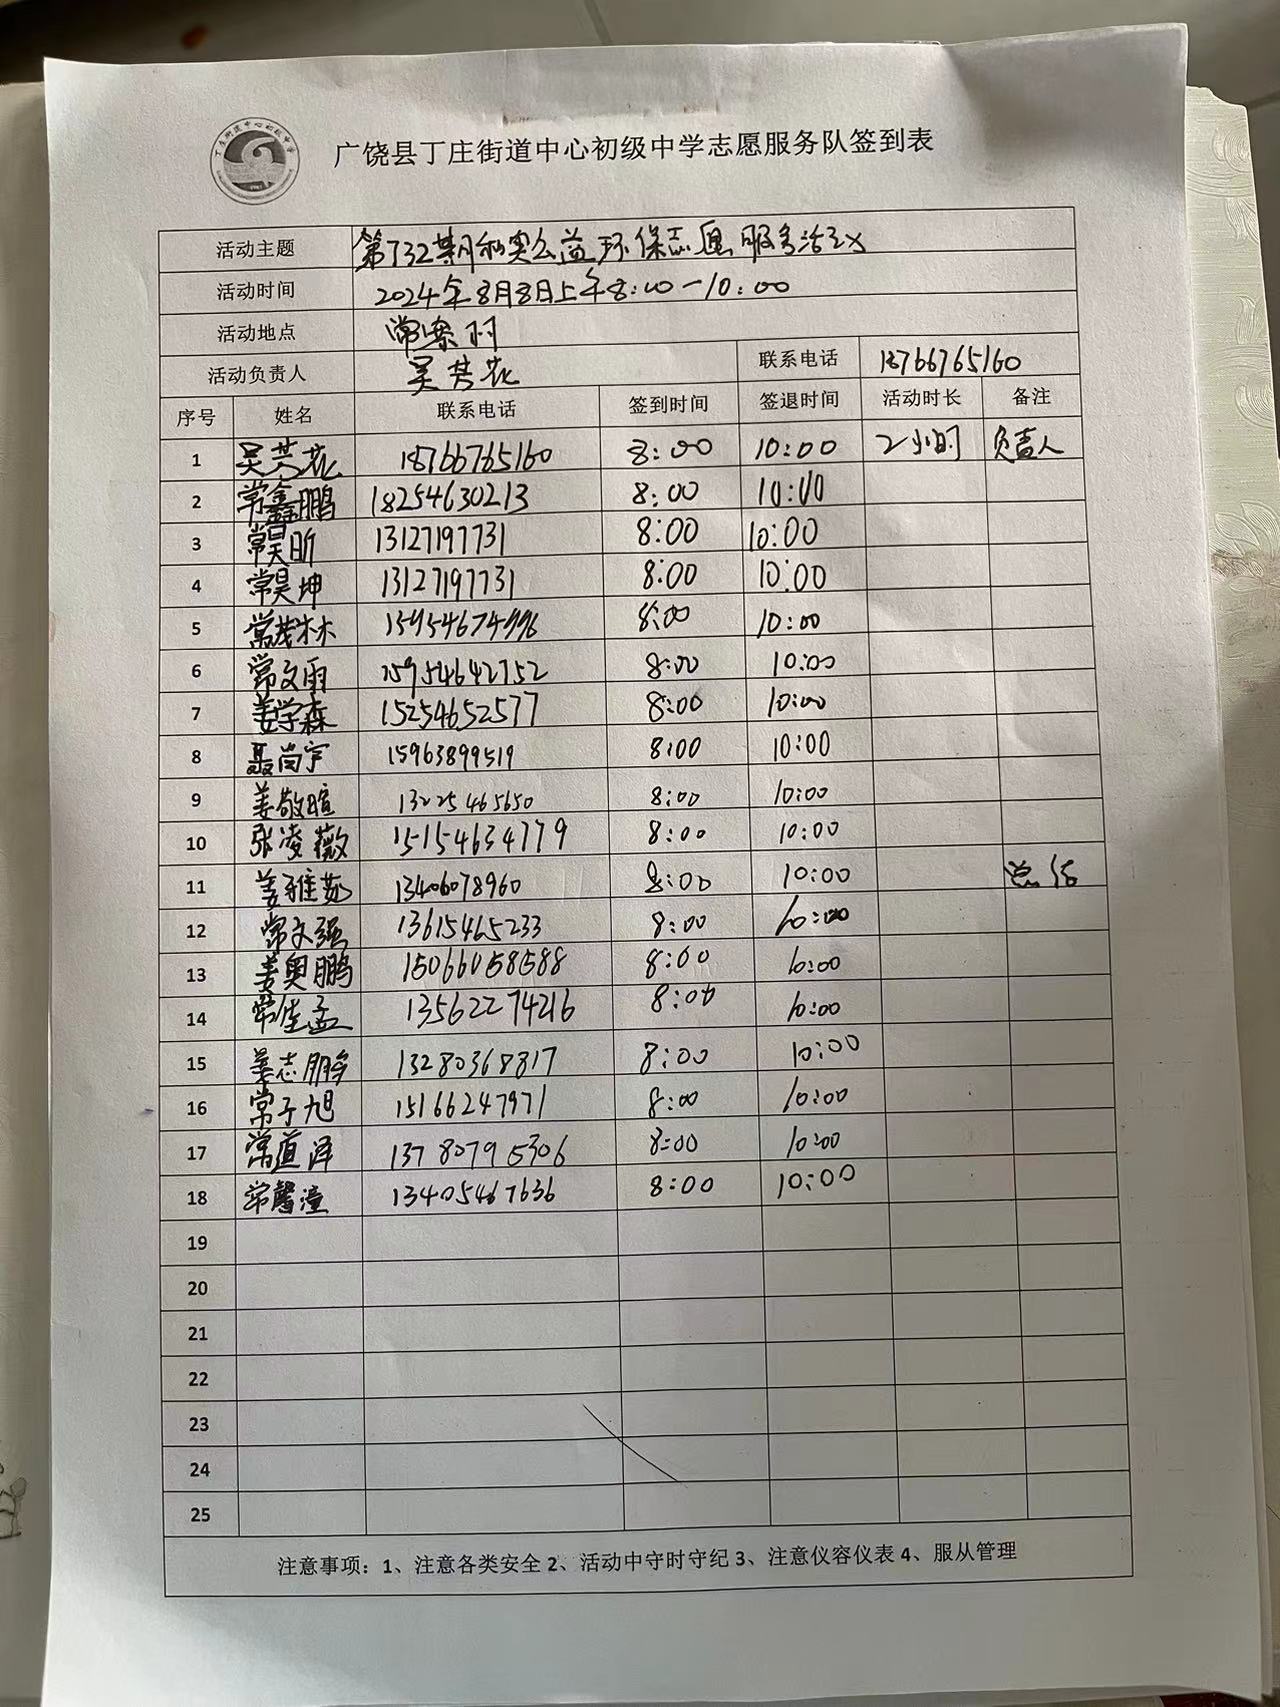 广饶县丁庄街道中心初级中学志愿服务队签到表
活动主题 第732期和实公益环保志愿服务活动
活动时间 2024年8月8日上午8:00—10:00
活动地点 常寨村
活动负责人 吴芳花 联系电话 18766765160
序号 姓名 联系电话 签到时间 签退时间 活动时长 备注
1 吴芳花 18766765160 8:00 10:00 2小时 负责人
2 常鑫鹏 18254630213 8:00 10:00
3 常昊昕 13127197731 8:00 10:00
4 常昊坤 13127197731 8:00 10:00
5 常茂林 8:00 10:00
6 常文雨 15954642752 8:00 10:00
7 姜学森 15254652577 8:00 10:00
8 聂尚宇 15963899519 8:00 10:00
9 姜敬暄 13225465650 8:00 10:00
10 张凌薇 15154634779 8:00 10:00
11 姜雅茹 13406078960 8:00 10:00 总结
12 常文强 13615465233 8:00 10:00
13 姜奥鹏 15066058588 8:00 10:00
14 常佳孟 13562274216 8:00 10:00
15 姜志鹏 13280368817 8:00 10:00
16 常子旭 15166247971 8:00 10:00
17 常道泽 13780795306 8:00 10:00
18 常馨潼 13405467636 8:00 10:00
19
20
21
22
23
24
25
注意事项：1、注意各类安全 2、活动中守时守纪 3、注意仪容仪表 4、服从管理